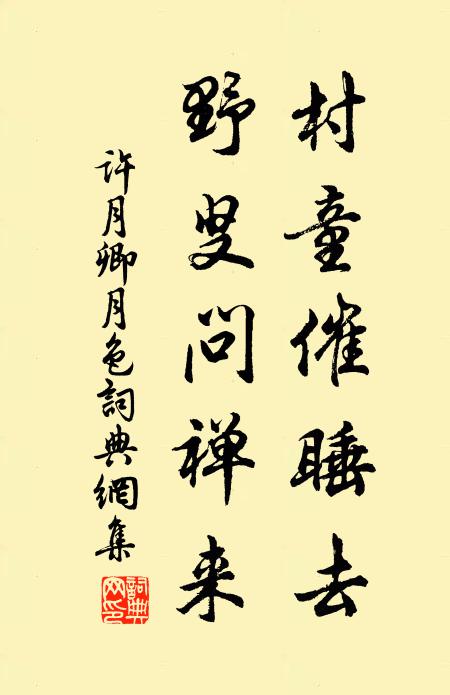 村童催睡去
野叟问禅来
許月卿月色詞典網集
詞典网印